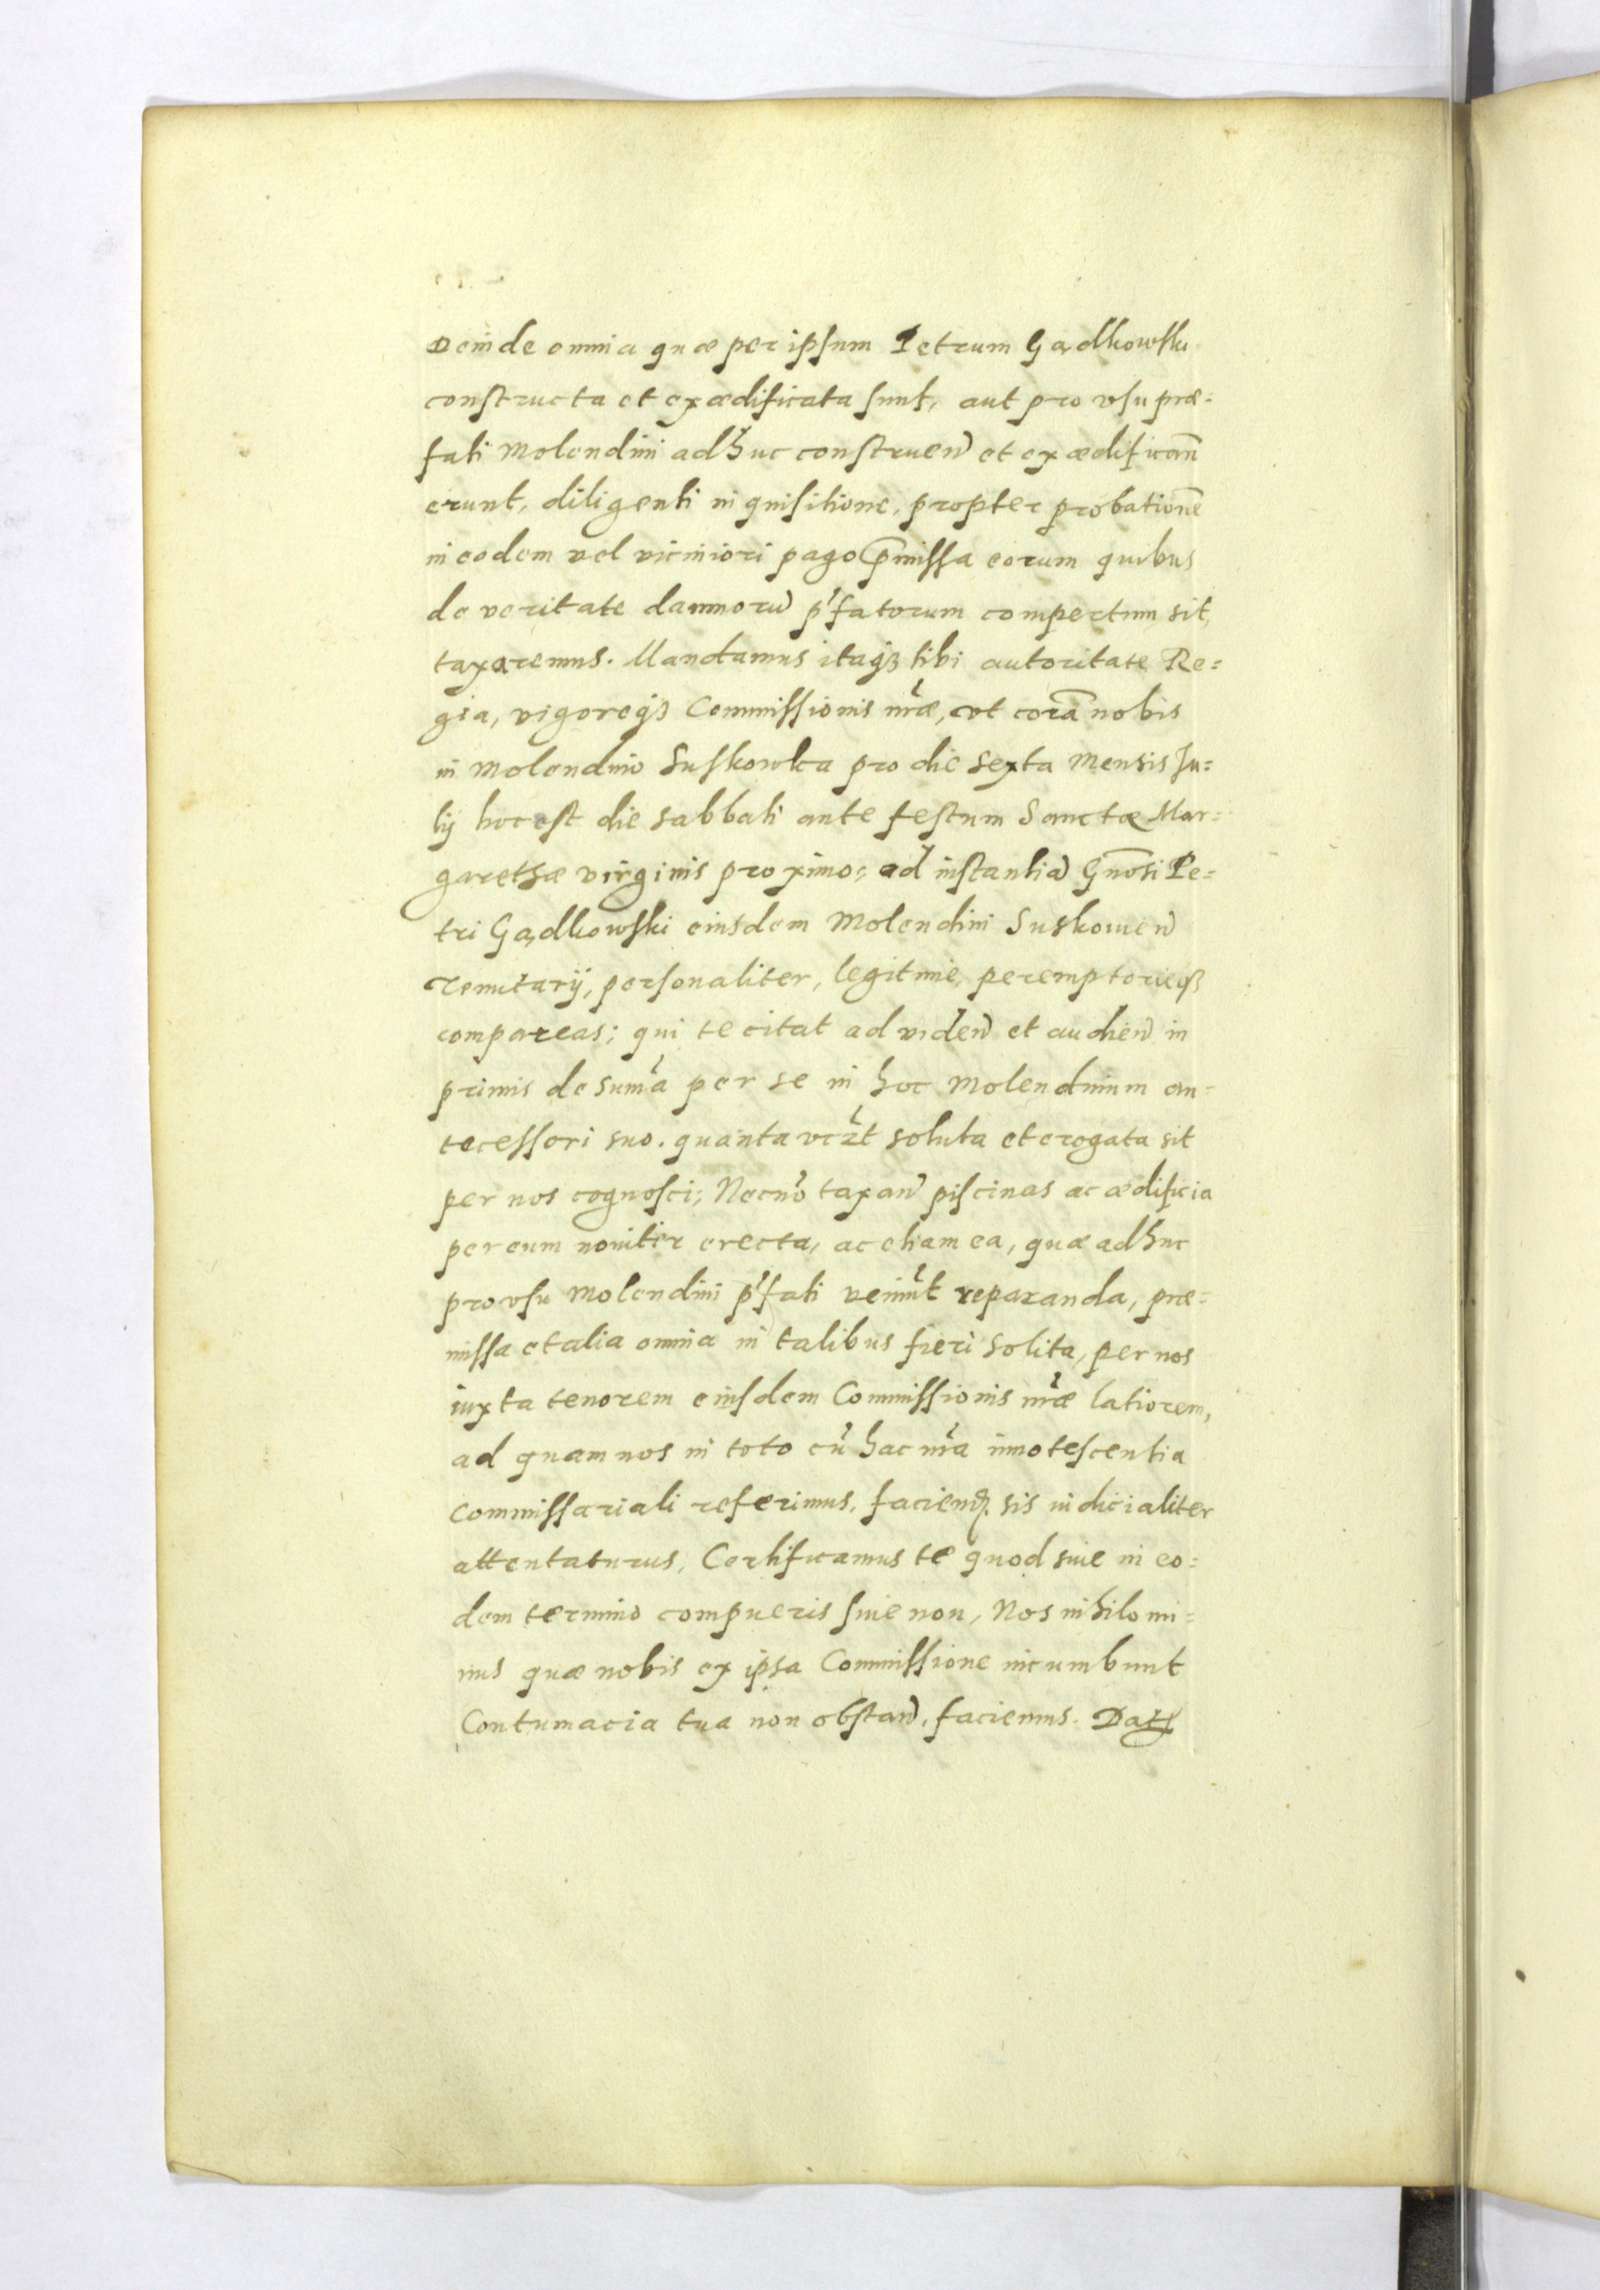 Deinde omnia quæ per ipsum Petrum Gądkowsku
constructa et exædificata sunt, aut pro vsu præ=
fati Molendini adhuc construen̄ et exædifican̄
erunt, diligenti inquisitione, propter probationē
in eodem vel viciniori pago p̄missa eorum quibus
de veritate damnorū p̄fatorum compertum sit,
taxaremus. Mandamus itaqꝫ tibi autoritate Re=
gia, vigoreqꝫ Commissionis nr̄æ, vt corā nobis
in Molendino Suskowka pro die sexta Mensis Ju=
lij hoc est die sabbati ante festum Sanctæ Mar=
garethæ virginis proximo; ad instantiā Gnōsi Pe=
tri Gądkowski eiusdem Molendini Suskowien̄
Tenutarij, personaliter, legitime, peremptorieqꝫ
compareas; qui te citat ad viden̄ et audien̄ in
primis de sum̄a per se in hoc Molendinum an=
tecessori suo. quanta vcz̄t soluta et erogata sit
per nos cognosci; Necnō taxan̄ piscinas ac ædificia
per eum nouiter erecta, ac etiam ea, quæ adhuc
pro vsu Molendini p̄fati veniūt reparanda, præ=
missa et alia omnia in talibus fieri solita, per nos
iuxta tenorem eiusdem Commissionis nr̄æ latiorem,
ad quam nos in toto cū hac nr̄a innotescentia
Commissariali referimus, facienꝗ. sis iudicialiter
attentaturus, Certificamus te quod siue in eo=
dem termino compueris siue non, Nos nihilomi=
nus quæ nobis ex ipsa Commissione incumbunt
Contumacia tua non obstan̄. faciemus. Datꝭ